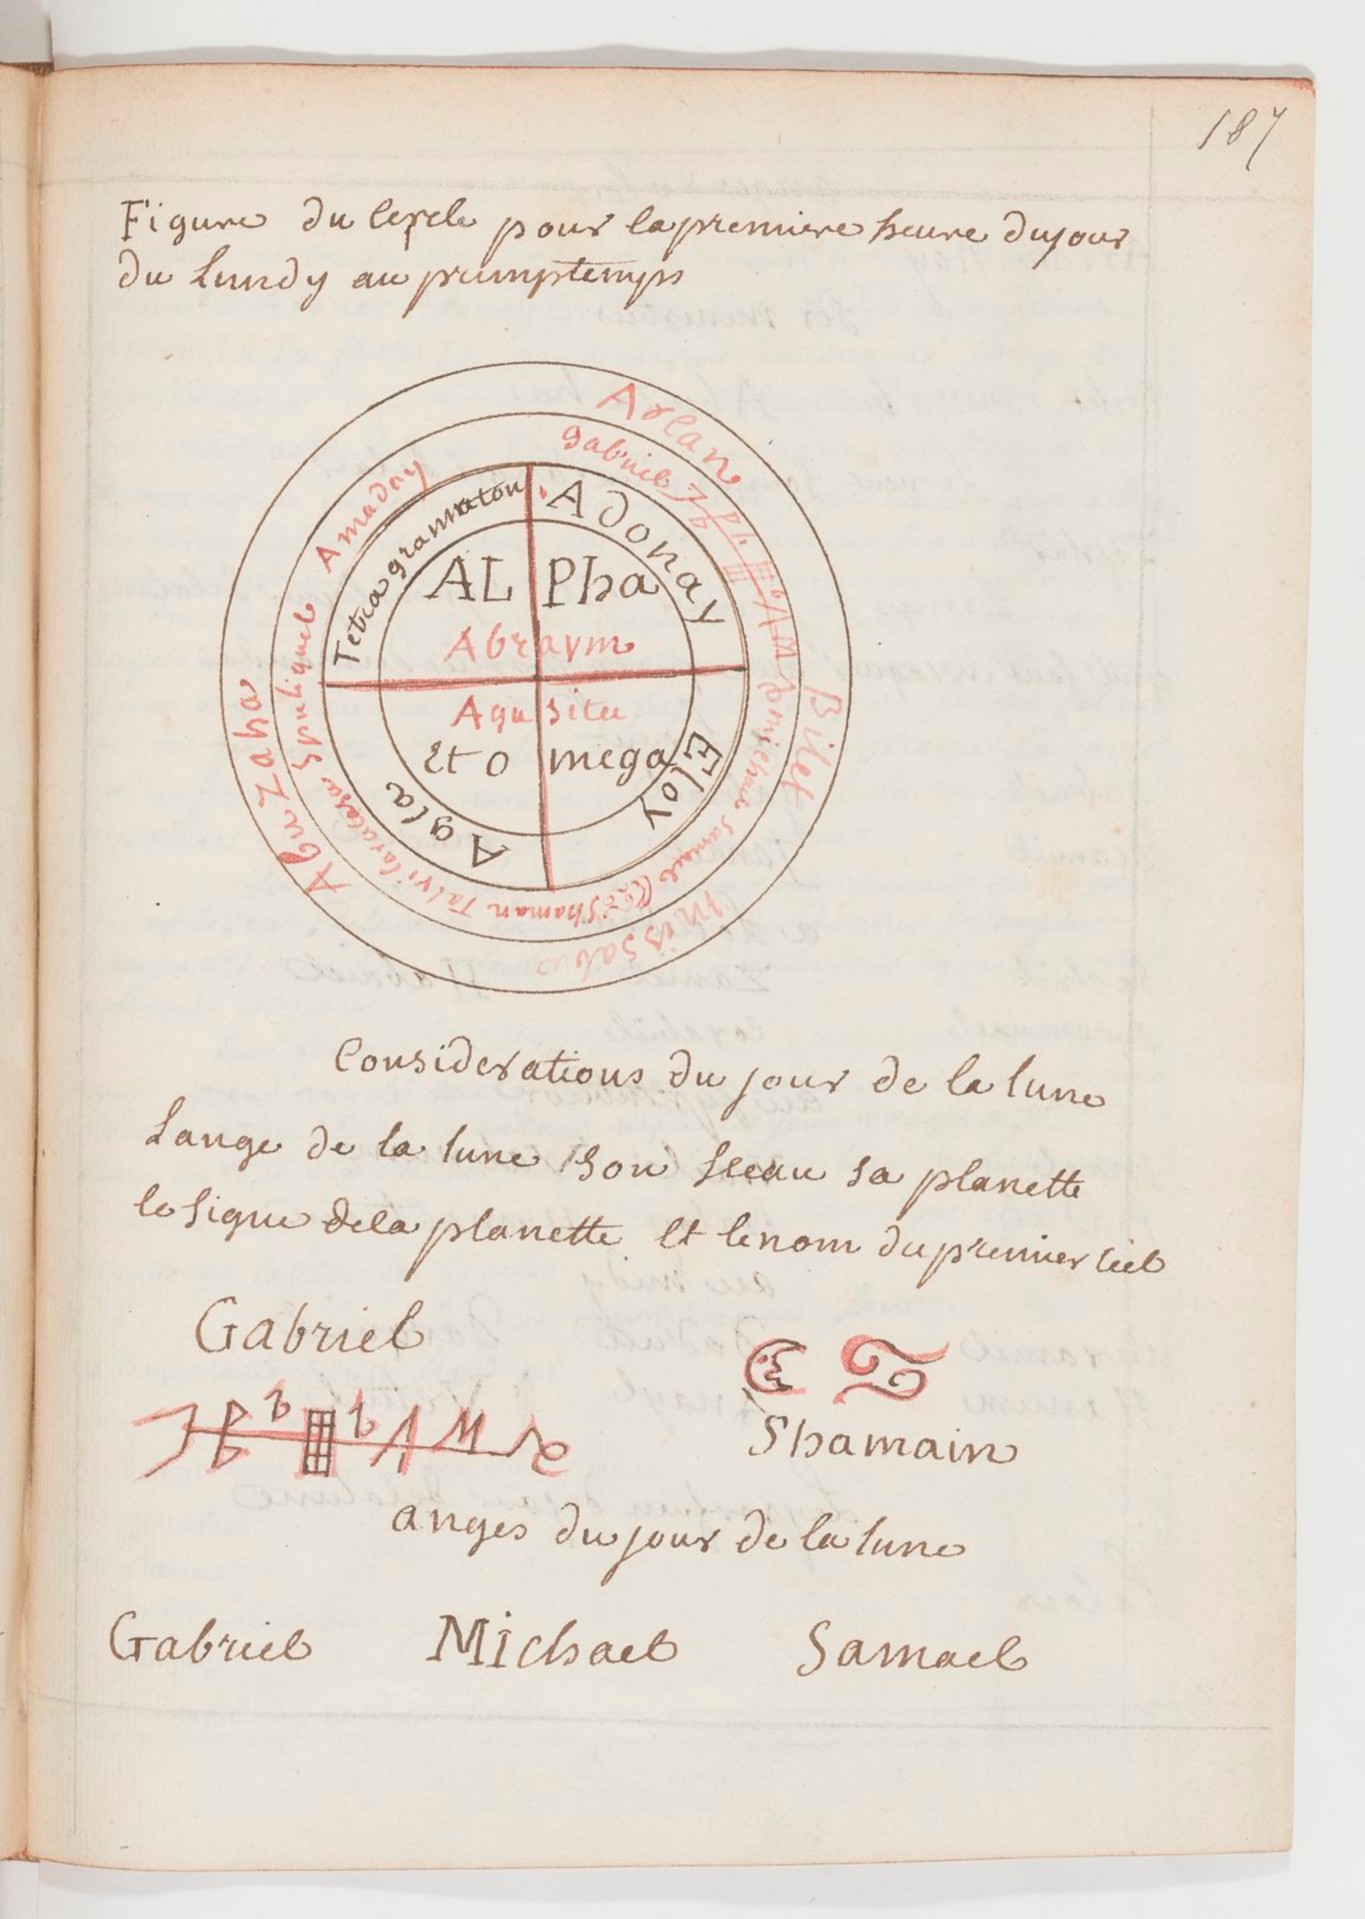 187
Figure du Cercle pour la premiere heure du jour
du Lundy au primptemps
Arcan
Bilet
Missabu
Abu Zaha
Gabriel
Michael Samael
Shaman Talvi Caratasa Spuliguel
Amadoy
Tetragrammaton
Adonay
Eloy
Agla
ALPha
Abraym
Aqusitu
Et Omega
Considerations du jour de la lune
Lange de la lune son sceau sa planette
le signe de la planette Et le nom du premier Ciel
Gabriel
Shamain
anges du jour de la lune
Gabriel Michael Samael